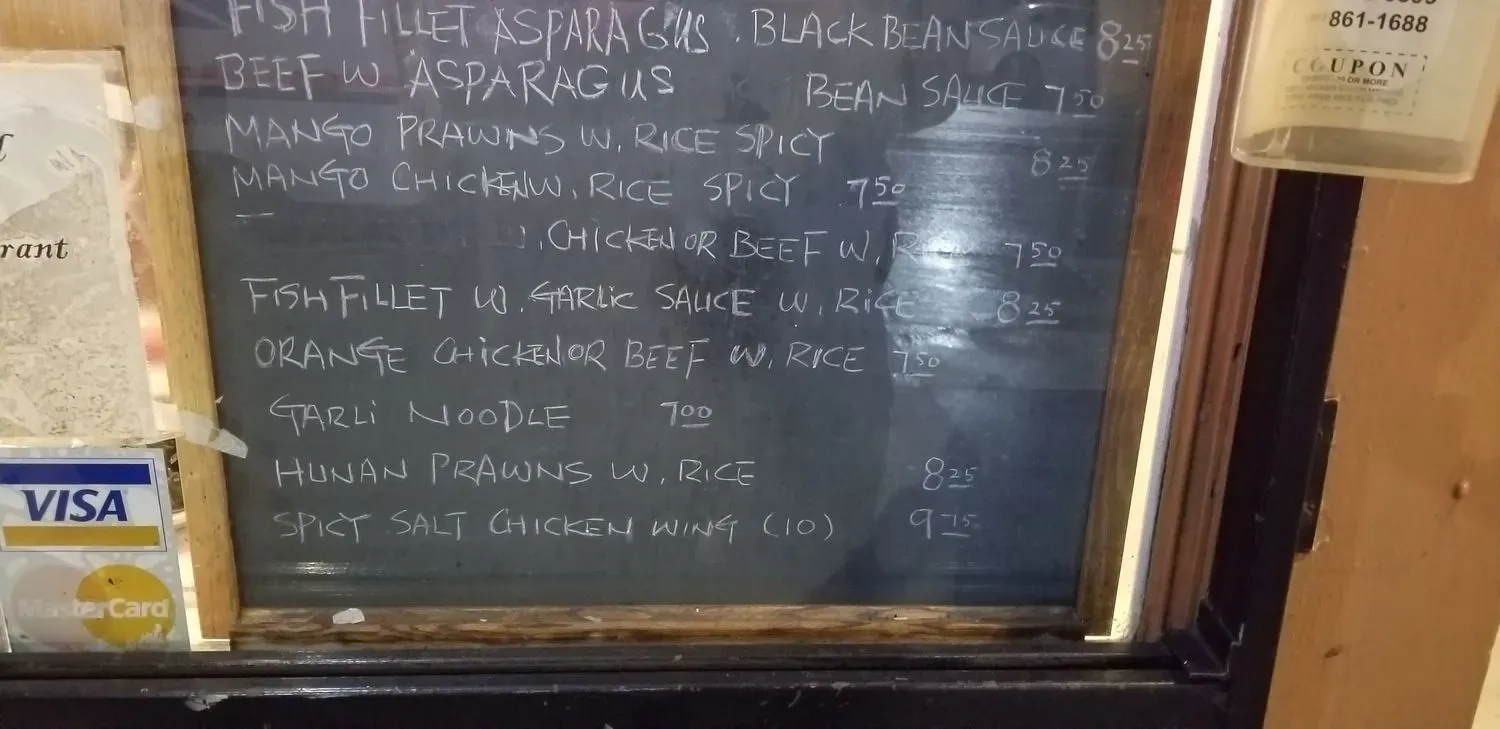 FISH FILLET ASPARAGUS . BLACK BEAN SAUCE 8 25
BEEF W ASPARAGUS BEAN SAUCE 7 50
MANGO PRAWNS W. RICE SPICY 8 25
MANGO CHICKEN W. RICE SPICY 7 50
. CHICKEN OR BEEF W. 7 50
FISH FILLET W. GARLIC SAUCE W. RICE 8 25
ORANGE CHICKEN OR BEEF W. RICE 7 50
GARLI NOODLE 7 00
HUNAN PRAWNS W. RICE 8 25
SPICY SALT CHICKEN WING (10) 9 75
rant
VISA
MasterCard
861-1688
COUPON
OR MORE